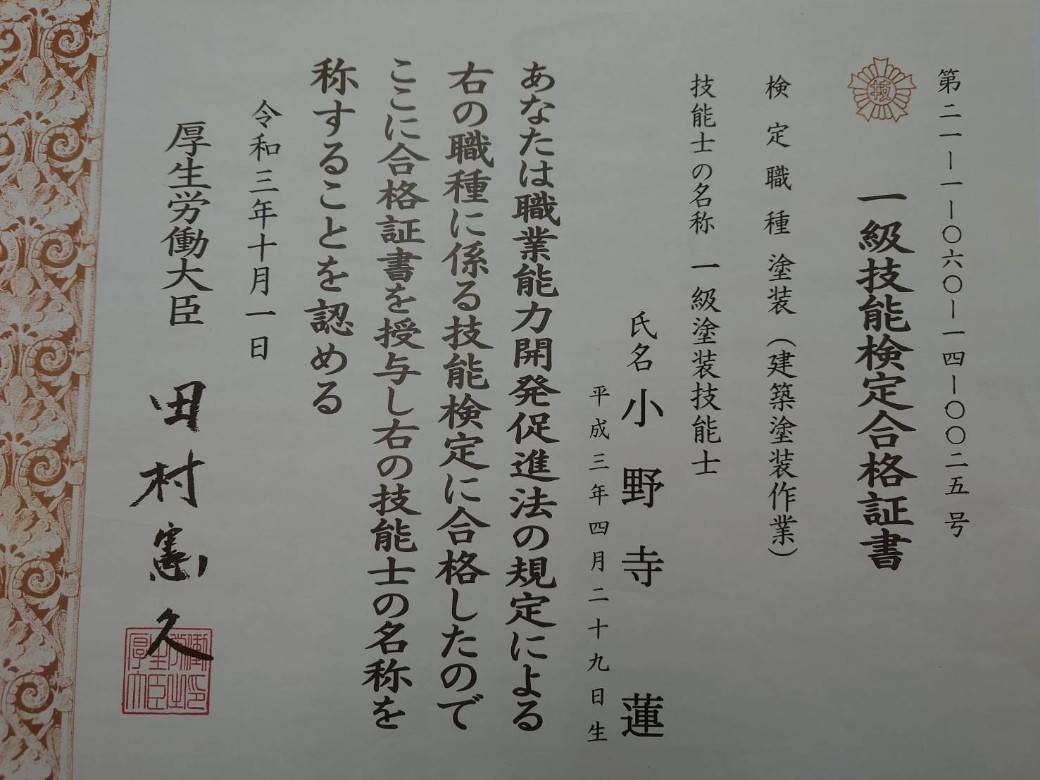 第二一ー一ー〇六〇ー一四ー〇〇二五号
一級技能検定合格証書
検定職種 塗装（建築塗装作業）
技能士の名称 一級塗装技能士
氏名 小野寺 蓮
平成三年四月二十九日生
あなたは職業能力開発促進法の規定による
右の職種に係る技能検定に合格したので
ここに合格証書を授与し右の技能士の名称を
称することを認める
令和三年十月一日
厚生労働大臣 田村憲久